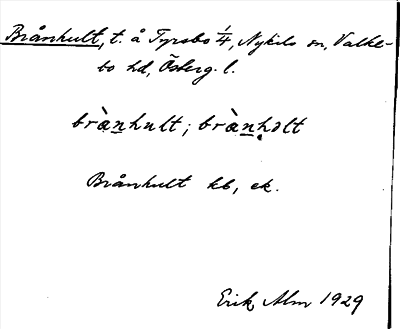 Brånhult, t. å Tyrsbo 1/4, Nykils sn, Valke-
bo hd, Österg. l.
bràn̲hult; bràn̲hɔlt
Brånhult kb, ek.
Erik Alm 1929